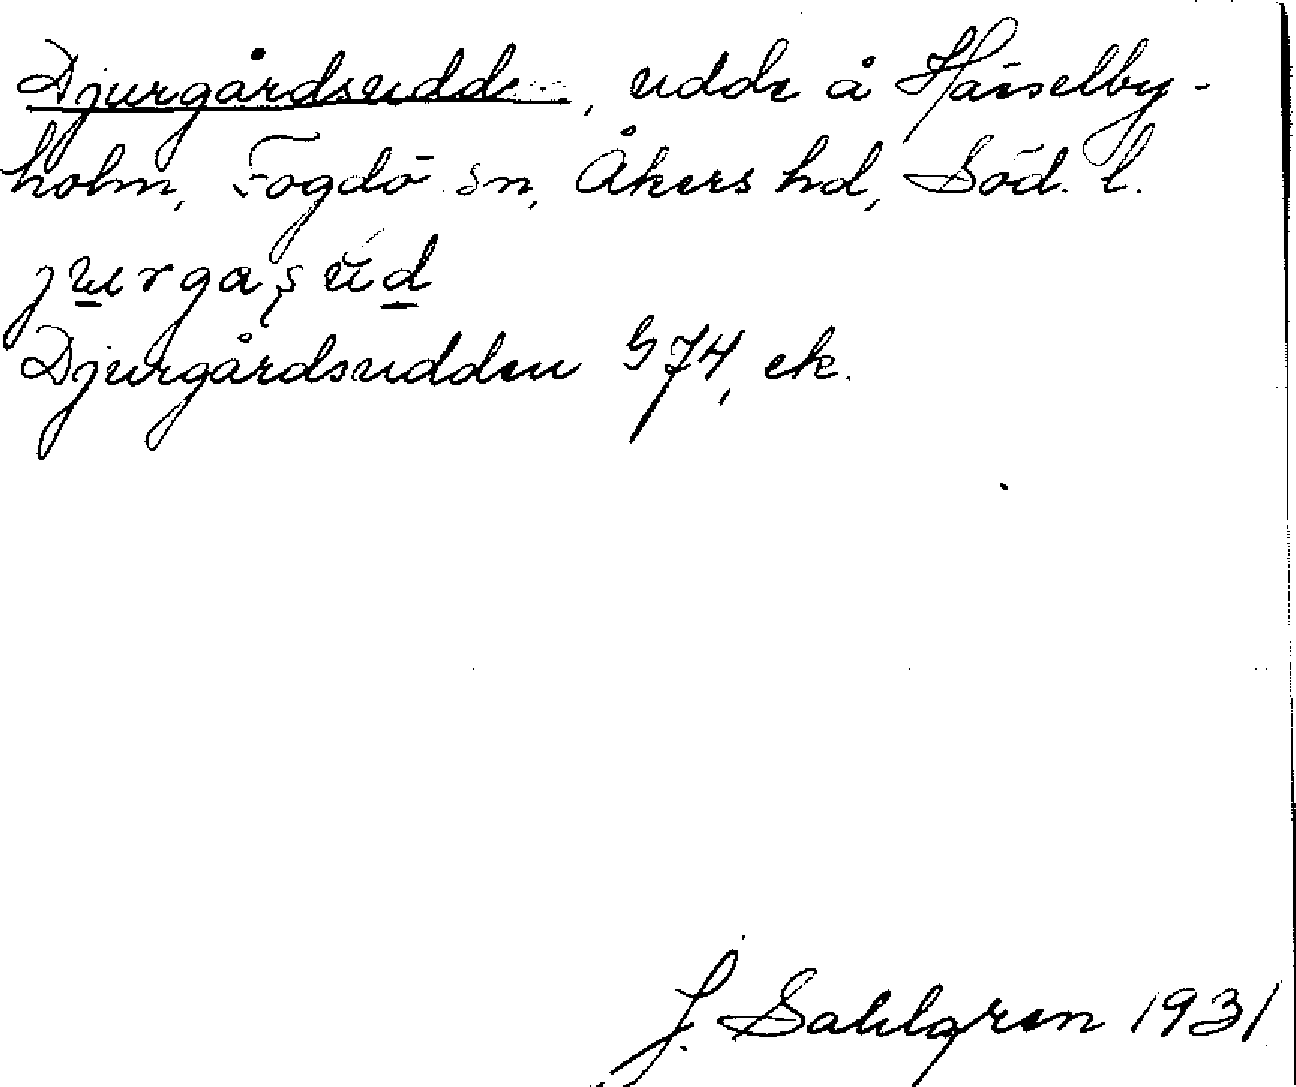 Djurgårdsudde, udde å Hässelby-
holm, Fogdö sn, Åkers hd, Söd. l.
Djurgårdsudden G74, ek.
J. Sahlgren 1931